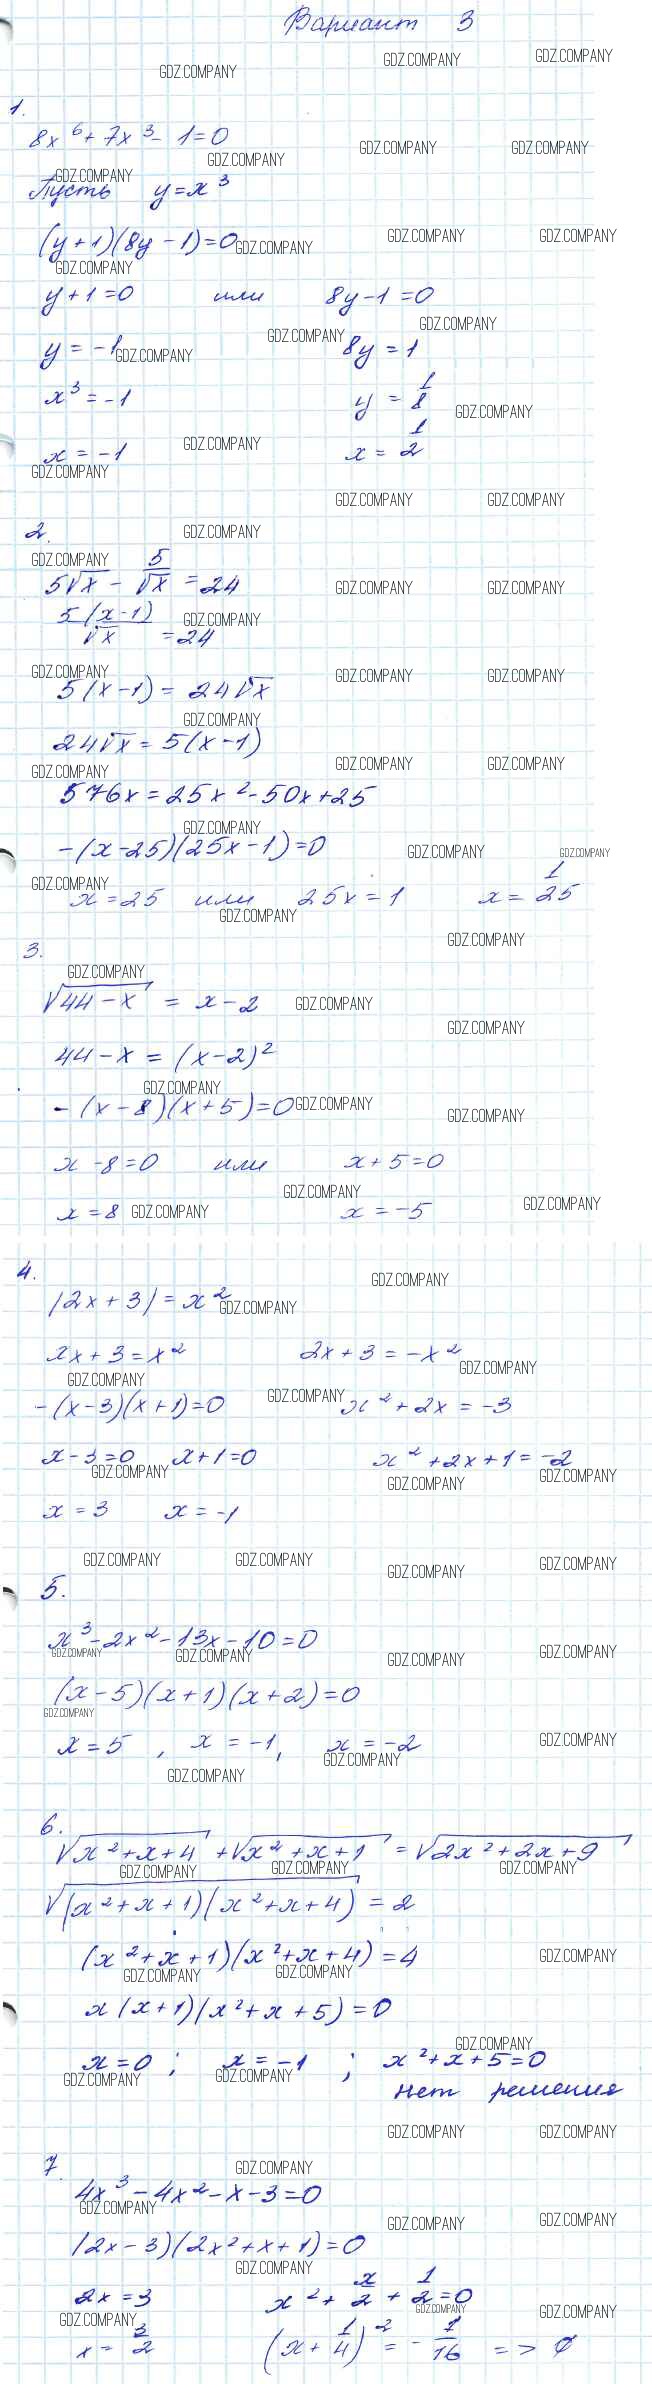 Вариант 3
1.
8x⁶ + 7x³ - 1 = 0
Пусть y = x³
(y + 1)(8y - 1) = 0
y + 1 = 0 или 8y - 1 = 0
y = -1 8y = 1
x³ = -1 y = 1/8
x = -1 x = 1/2
2.
5√x - 5/√x = 24
5(x-1)/√x = 24
5(x - 1) = 24√x
24√x = 5(x - 1)
576x = 25x² - 50x + 25
-(x - 25)(25x - 1) = 0
x = 25 или 25x = 1 x = 1/25
3.
√(44 - x) = x - 2
44 - x = (x - 2)²
-(x - 8)(x + 5) = 0
x - 8 = 0 или x + 5 = 0
x = 8 x = -5
4.
|2x + 3| = x²
2x + 3 = x² 2x + 3 = -x²
-(x - 3)(x + 1) = 0 x² + 2x = -3
x - 3 = 0 x + 1 = 0 x² + 2x + 1 = -2
x = 3 x = -1
5.
x³ - 2x² - 13x - 10 = 0
(x - 5)(x + 1)(x + 2) = 0
x = 5, x = -1, x = -2
6.
√(x² + x + 4) + √(x² + x + 1) = √(2x² + 2x + 9)
√((x² + x + 1)(x² + x + 4)) = 2
(x² + x + 1)(x² + x + 4) = 4
x(x + 1)(x² + x + 5) = 0
x = 0; x = -1; x² + x + 5 = 0
нет решения
7.
4x³ - 4x² - x - 3 = 0
(2x - 3)(2x² + x + 1) = 0
2x = 3 x² + x/2 + 1/2 = 0
x = 3/2 (x + 1/4)² = -1/16 => ∅
GDZ.COMPANY